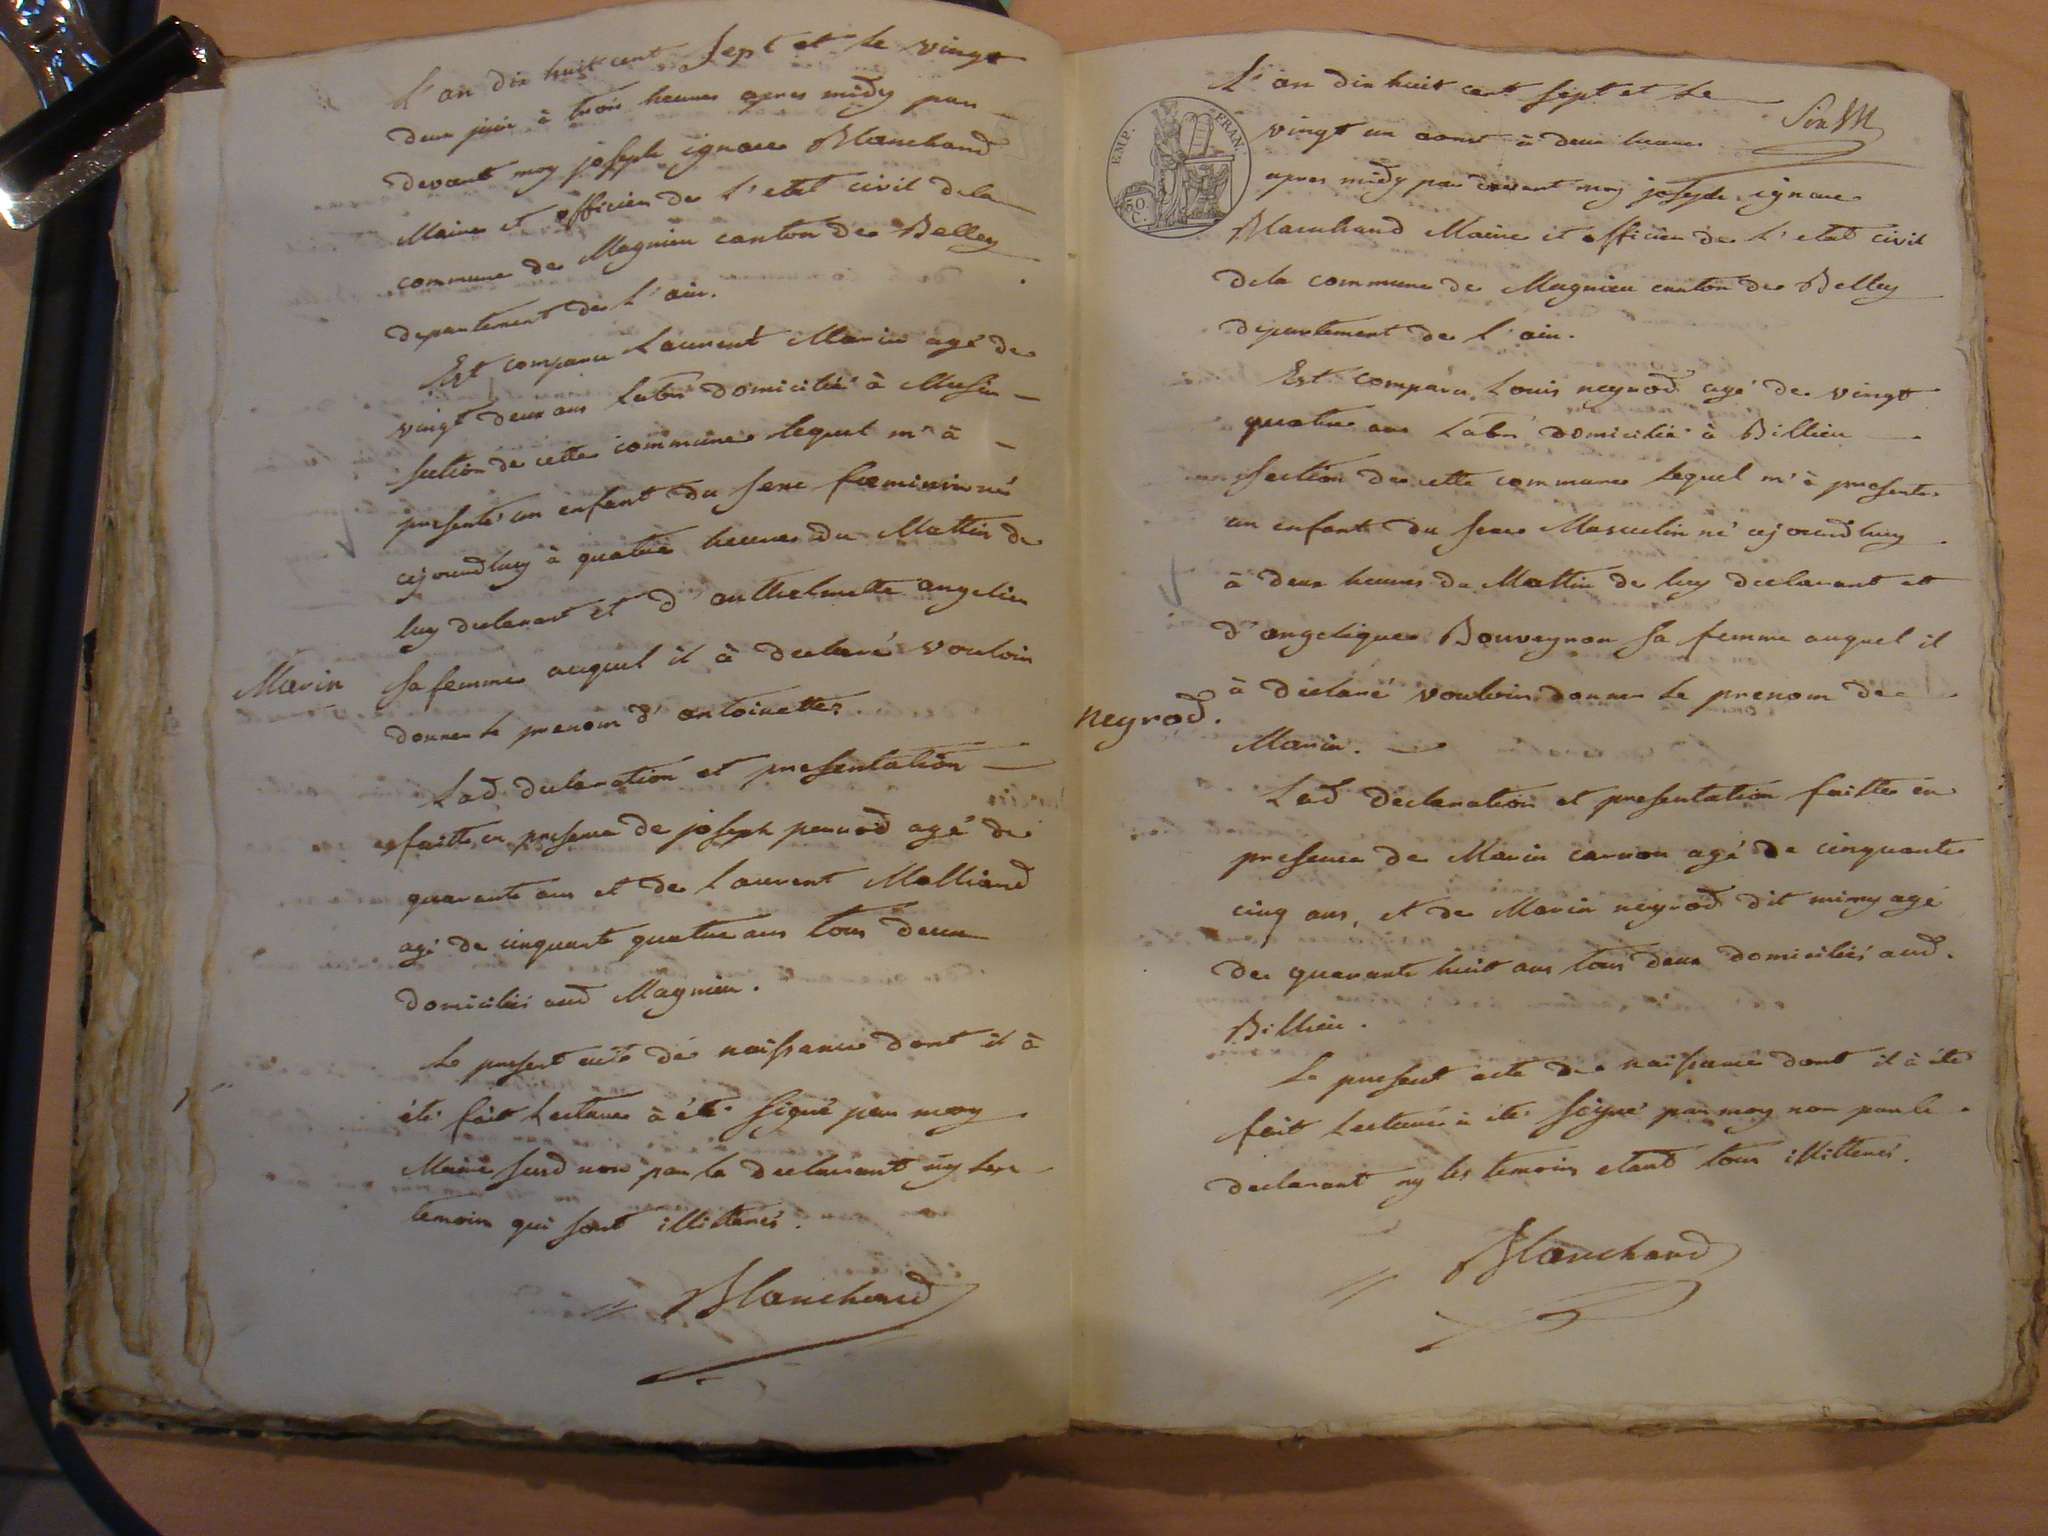 L'an dix huit cent sept et le vingt
deux juin à trois heures apres midy par
devant moy joseph ignace Blanchard
Maire et officier de l'etat civil dela
commune de Magnieu canton de Belley
departement de l'ain.
Est comparu Laurent Marin agé de
vingt deux ans labr domicilié à Musin
section de cette commune lequel m'à
presenté un enfant du sexe foeminin né
cejourdhuy à quatre heures du Mattin de
luy declarant et d'anthelmette angelier
Marin
sa femme auquel il à declaré vouloir
donner le prenom d'antoinette
Lad declaration et presentation
faitte en presence de joseph perrod agé de
quarante ans et de Laurent Molliard
agé de cinquante quatre ans tous deux
domiciliés aud Magnieu.
Le present acte de naissance dont il à
été fait Lecture à été signé par moy
Maire susd non par le declarant ny les
temoins qui sont illitterés.
Blanchard
EMP. FRAN.
50. C.
L'an dix huit cent sept et le
vingt un aout à deux heures
apres midy par devant moy joseph ignace
Blanchard Maire et officier de l'etat civil
dela commune de Magnieu canton de Belley
departement de l'ain.
Est comparu Louis neyrod agé de vingt
quatre ans labr domicilié à Billieu
section de cette commune lequel m'à presenté
un enfant du sexe Masculin né cejourdhuy
à deux heures du Mattin de luy declarant et
d'angelique Bouveyron sa femme auquel il
à declaré vouloir donner le prenom de
neyrod.
Marin.
Lad declaration et presentation faitte en
presence de Marin carron agé de cinquante
cinq ans, et de Marin neyrod dit mimy agé
de quarante huit ans tous deux domiciliés aud.
Billieu.
Le present acte de naissance dont il à été
fait Lecture à été signé par moy non par le
declarant ny les temoins etant tous illitterés.
Blanchard